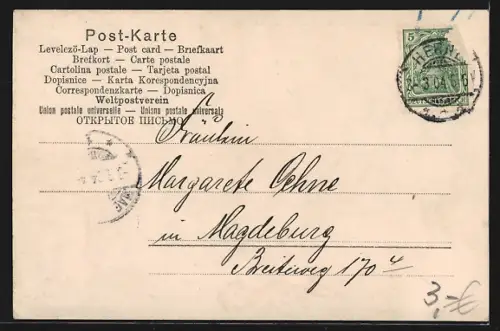 Post-Karte
Levelező-Lap — Post card — Briefkaart
Brefkort — Carte postale
Cartolina postale — Tarjeta postal
Dopisnice — Karta Korespondencyjna
Correspondenzkarte — Dopisnica
Weltpostverein
Union postale universelle — Unione postale universale
ОТКРЫТОЕ ПИСЬМО
5
Fräulein
Margarete Oehne
in Magdeburg
Breiteweg 170
3,-€